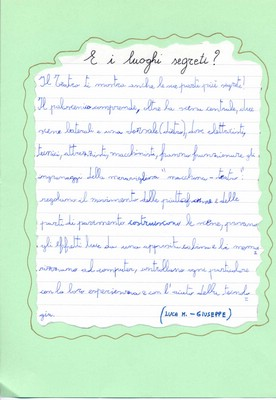 E i luoghi segreti?
Il Teatro ti mostra anche le sue parti più segrete!
Il palcoscenico comprende, oltre la scena centrale, due
scene laterali e una dorsale (dietro), dove elettricisti,
tecnici, attrezzisti, macchinisti, fanno funzionare gli
ingranaggi della meravigliosa "macchina-teatro":
regolano il movimento delle piattaforme e delle
parti di pavimento costruiscono le scene, provano
gli effetti luce da una apposita cabina e la
ad computer, controllano ogni particolare
con la loro esperienza e con l'aiuto della tecnolo
gia.
(LUCA M. - GIUSEPPE)